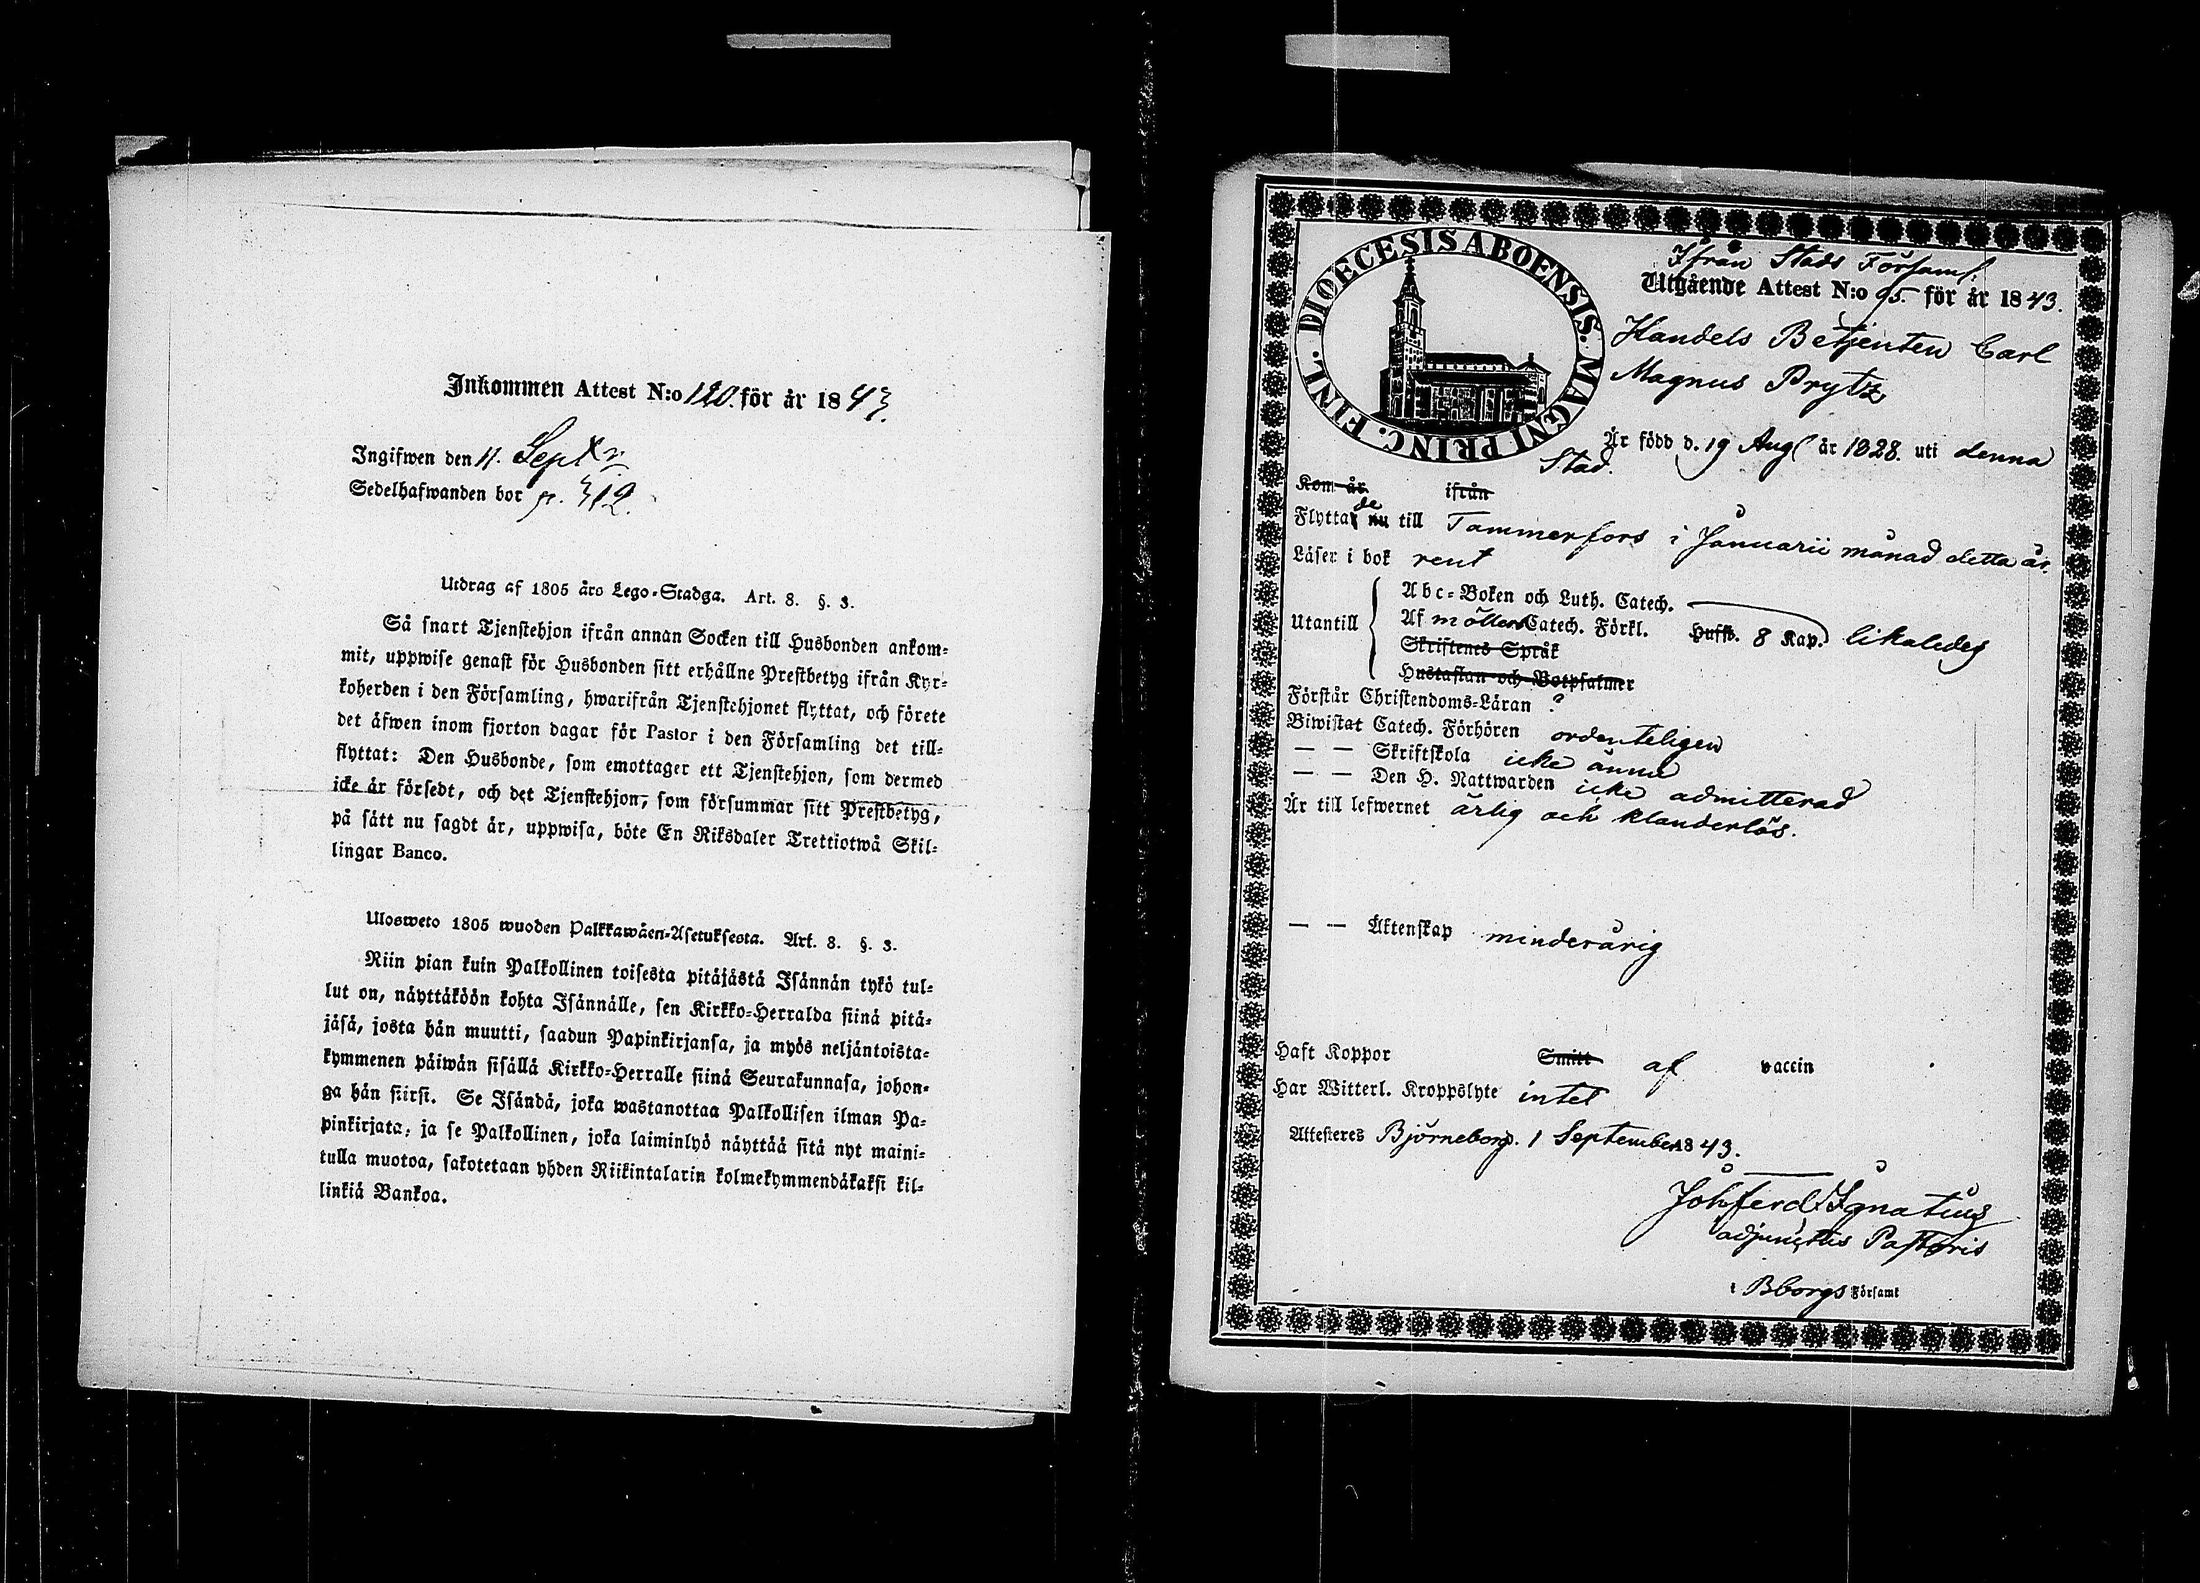 Inkommen Attest N:o 120. för år 1843.
Ingifwen den 11. Septr
Sedelhafwanden bor p. 312.
Utdrag af 1805 års Lego-Stadga. Art. 8. §. 3.
Så snart Tjenstehjon ifrån annan Socken till Husbonden ankom-
mit, uppwise genast för Husbonden sitt erhållne Prestbetyg ifrån Kyr-
koherden i den Församling, hwarifrån Tjenstehjonet flyttat, och förete
det äfwen inom fjorton dagar för Pastor i den Församling det till-
flyttat: Den Husbonde, som emottager ett Tjenstehjon, som dermed
icke är försedt, och det Tjenstehjon, som försummar sitt Prestbetyg,
på sätt nu sagdt är, uppwisa, böte En Riksdaler Trettiotwå Skil-
lingar Banco.
Ulosweto 1805 wuoden Palkkawäen-Asetuksesta. Art. 8. §. 3.
Niin pian kuin Palkollinen toisesta pitäjästä Isännän tykö tul-
lut on, näyttäköön kohta Isännälle, sen Kirkko-Herralda siinä pitä-
jäsä, josta hän muutti, saadun Papinkirjansa, ja myös neljäntoista-
kymmenen päiwän sisällä Kirkko-Herralle siinä Seurakunnasa, johon-
ga hän siirsi. Se Isändä, joka wastanottaa Palkollisen ilman Pa-
pinkirjata, ja se Palkollinen, joka laiminlyö näyttää sitä nyt maini-
tulla muotoa, sakotetaan yhden Riikintalarin kolmekymmendäkaksi kil-
linkiä Bankoa.
DIOECESIS ABOENSIS. MAGNI PRINC. FINL.
Ifrån Stads Församl.
Utgående Attest N:o 95. för år 1843.
Handels Betjenten Carl
Magnus Prytz
Är född d. 19 Aug är 1828. uti denna
Stad.
Kom år ifrån
Flyttade nu till Tammerfors i Januarii månad detta år.
Läser i bok rent
Utantill
Abc-Boken och Luth. Catech.
Af möllers Catech. Förkl. Huffs. 8 Kap. likaledes
Skriftenes Språk
Hustaflan och Botpsalmer
Förstår Christendoms-Läran ?
Biwistat Catech. Förhören ordenteligen
— — Skriftskola icke ännu
— — Den H. Nattwarden icke admitterad
Är till lefwernet ärlig och klanderlös.
— — Äktenskap minderårig
Haft Koppor Smitt af vaccin
Har Witterl. Kroppslyte intet
Attesteres Björneborg. 1 September 1843.
Joh Ferd Ignatius
adjunctus Pastoris
i Bborgs Församl